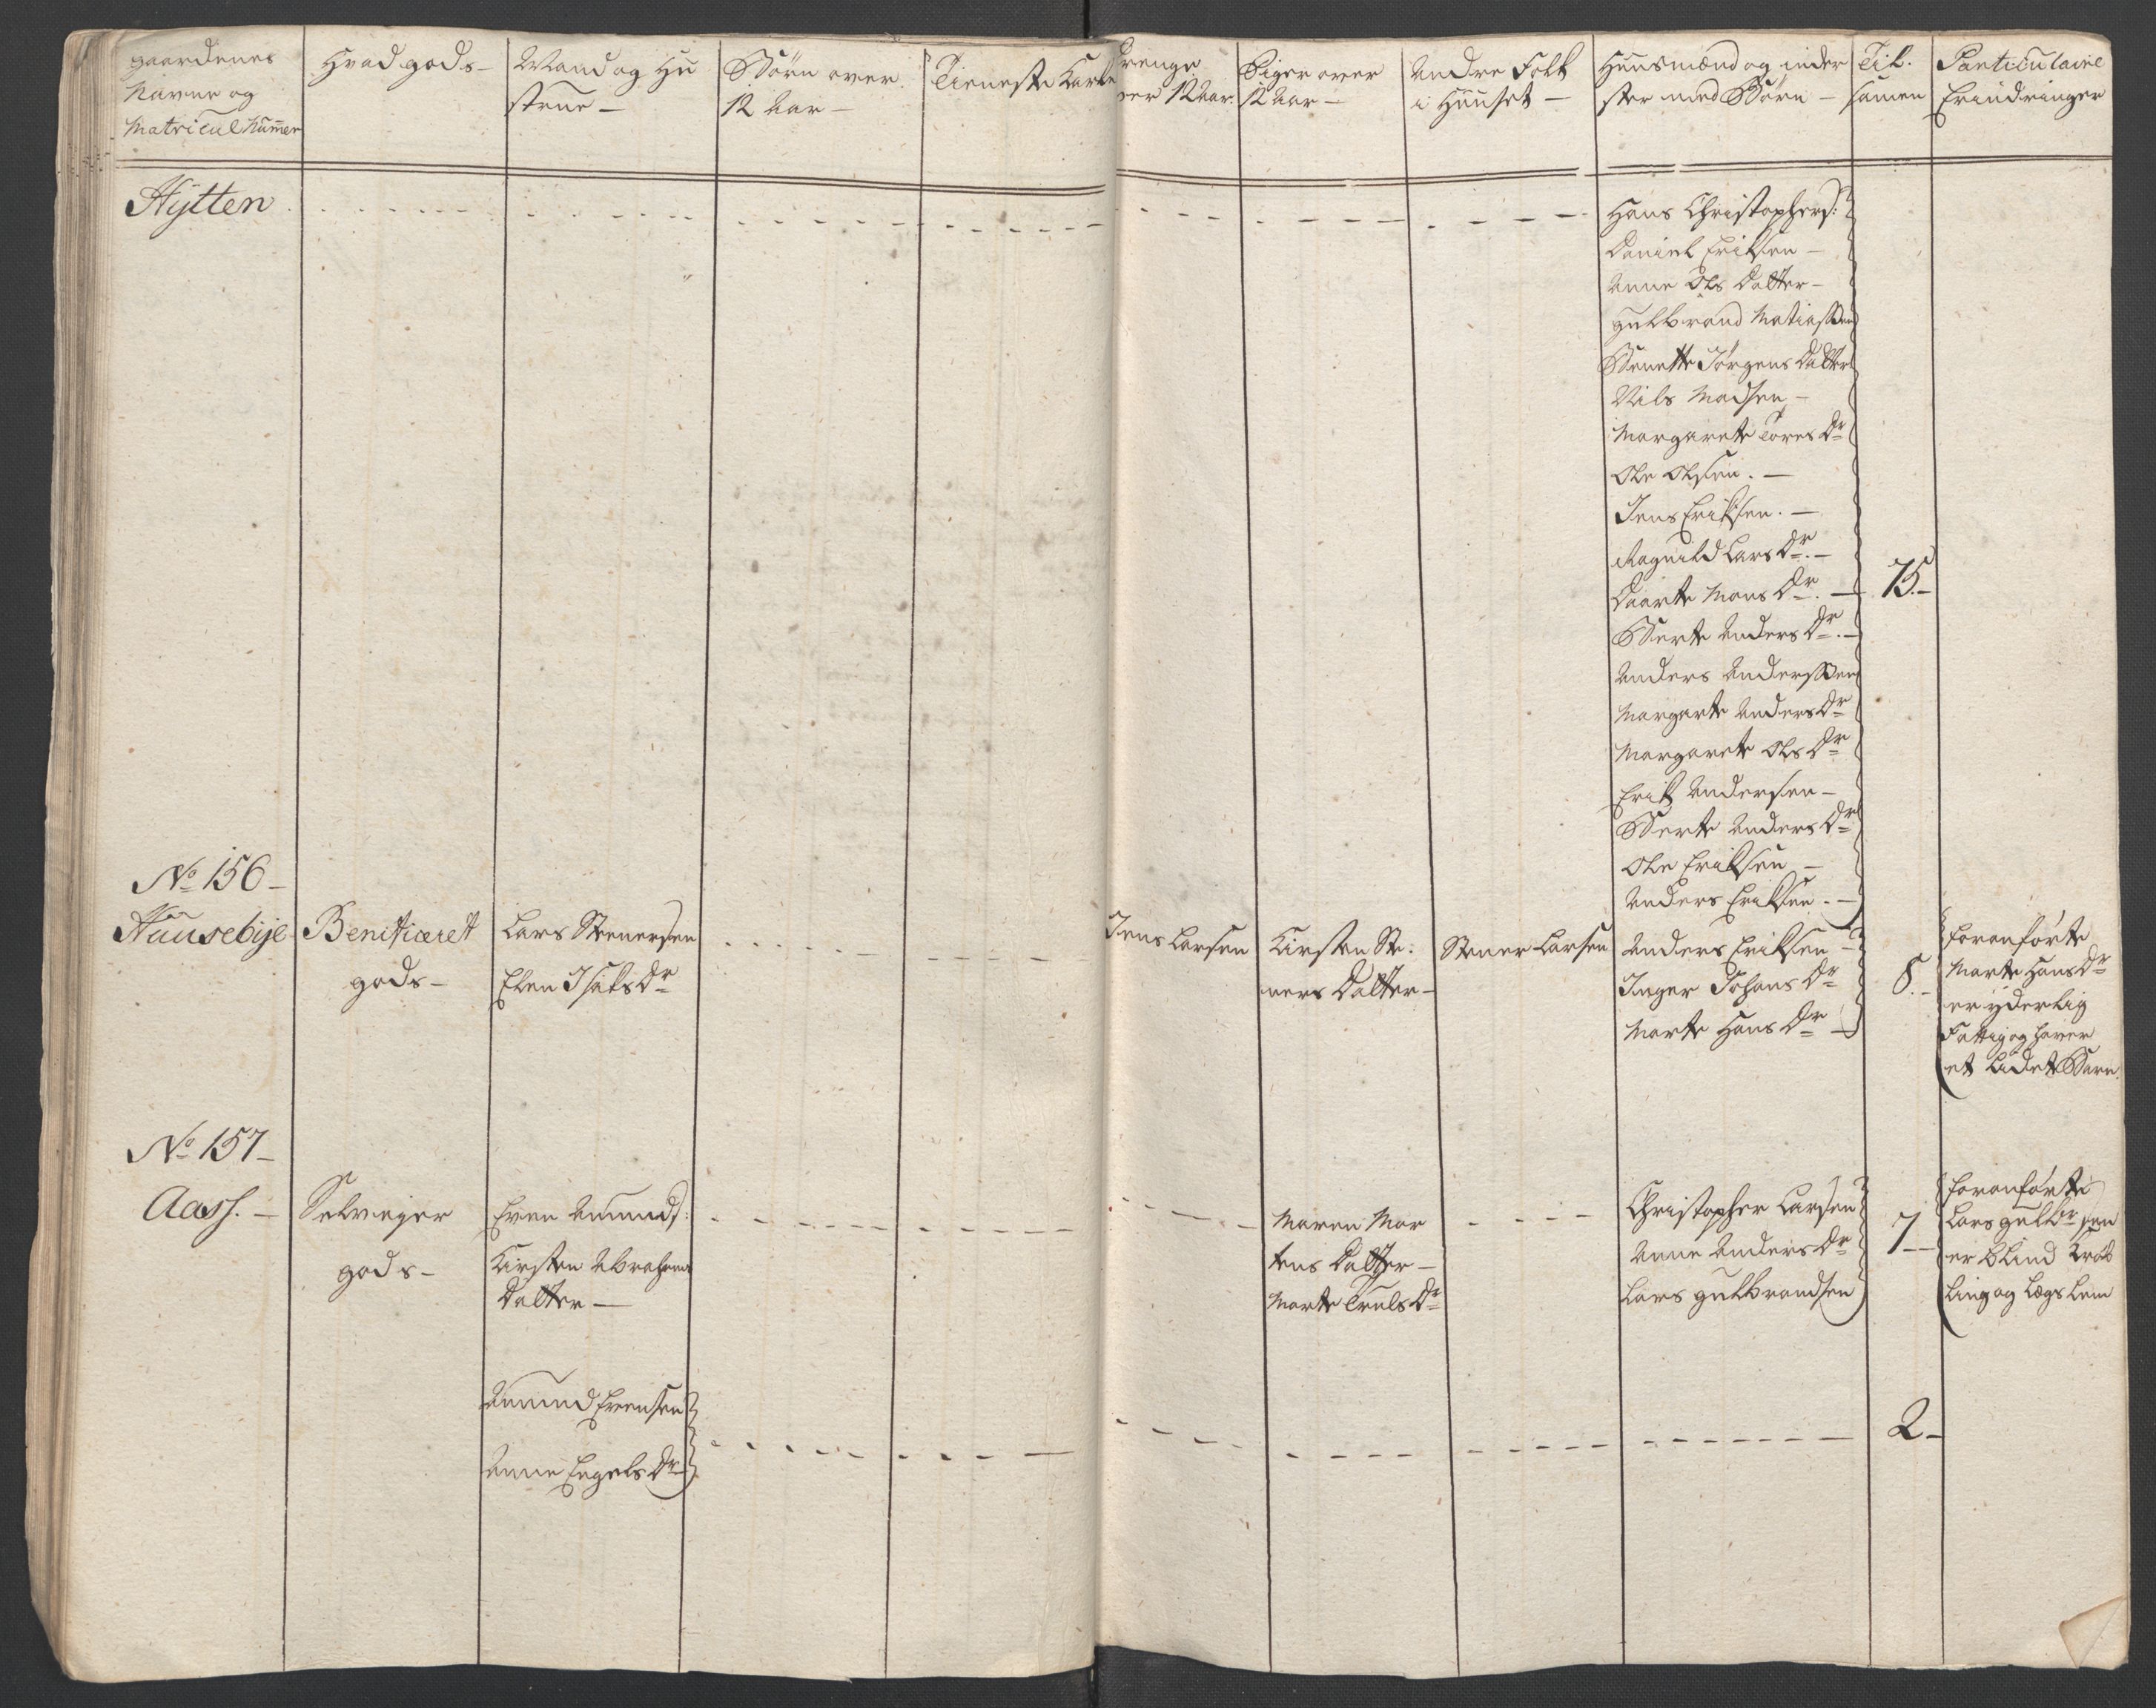 gaardenes
Navne og
Matricul Nummer
Hvad gods -
Mand og Hu
strue -
Børn over
12 Aar -
Tieneste Karle
Drenge
over 12 Aar.
Piger over
12 Aar -
Andre Folk
i Huuset -
Huusmænd og inder
ster med Børn -
Til.
samen
Particulaire
Erindringer
Hytten
Hans Christophers:
Daniel Eriksen -
Anne Ols Datter -
Gulbrand Matiassen
Benette Jørgens Datter
Nils Madsen -
Margarete Tores Dr
Ole Olsen. -
Jens Eriksen. -
Ragnild Lars Dr. -
Daarte Mons Dr. -
75. -
Berte Anders Dr. -
Anders Anderssen
Margarte Anders Dr
Margarete Ols Dr
Erik Andersen -
Berte Anders Dr
Ole Eriksen -
Anders Eriksen. -
No 156 -
Huusebije
Benificeret
gods -
Lars Stenersen
Elen Isaks Dr
Jens Larsen
Kirsten Ste:
ners Datter -
Stener Larsen
Anders Eriksen -
Inger Johans Dr
Marte Hans Dr
8. -
foranførte
Marte Hans Dr
er yderlig
Fattig og haver
et Lidet Barn.
No 157 -
Aass. -
Selveyer
gods -
Even Amunds:
Kirsten Abrahams
Datter -
Maren Mor
tens Datter -
Marte Truls Dr
Christopher Larsen
Anne Anders Dr
Lars Gulbrandsen
7 -
foranførte
Lars Gulbr sen
er blind Krøb
ling og Lægs Lem
Amund Evensen
Anne Engels Dr
2 -